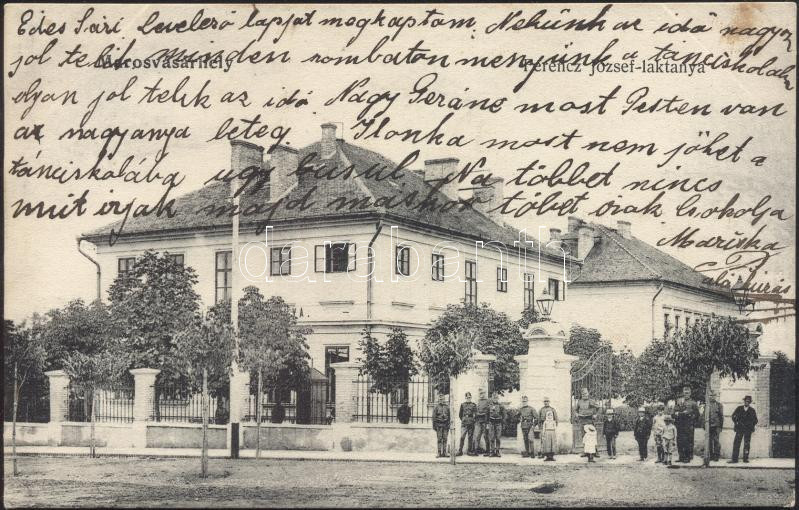 Édes Sári, levelező lapjat megkaptam. Nekünk az idő nagyon
jol telik minden szombaton menjünk a tánciskolaba
olyan jol telik az idő. Nagy Geráné most Pesten van
az nagyanya leteg. Ilonka most nem jöhet a
tánciskolába ugy busul. Na többet nincs
mit irjak majd máskor többet irok Csokolja
Mariska
aláirás
Marosvásárhely
Ferencz József-laktanya
darabanth.com